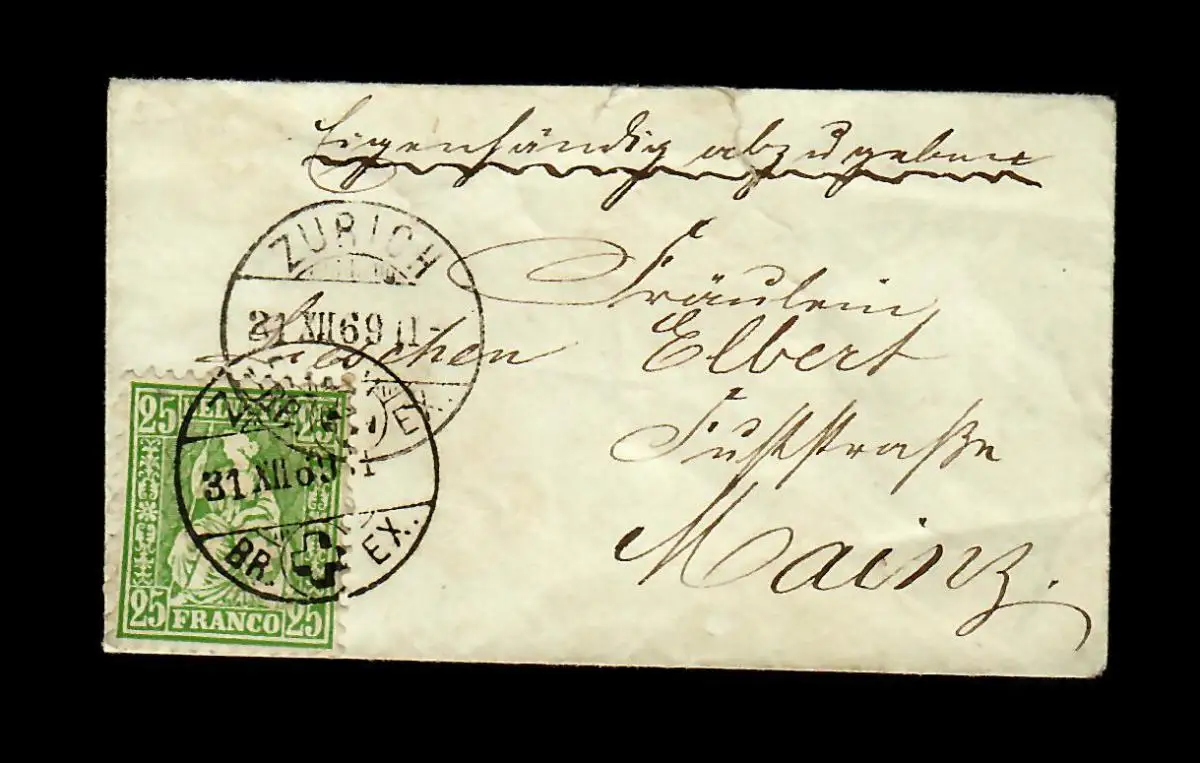 Eigenhändig abzugeben
ZÜRICH
31 XII 69 11-
EX.
Fräulein
Elbert
Fuststraße
Mainz.
31 XII 69
BR. EX.
25 25
25 FRANCO 25